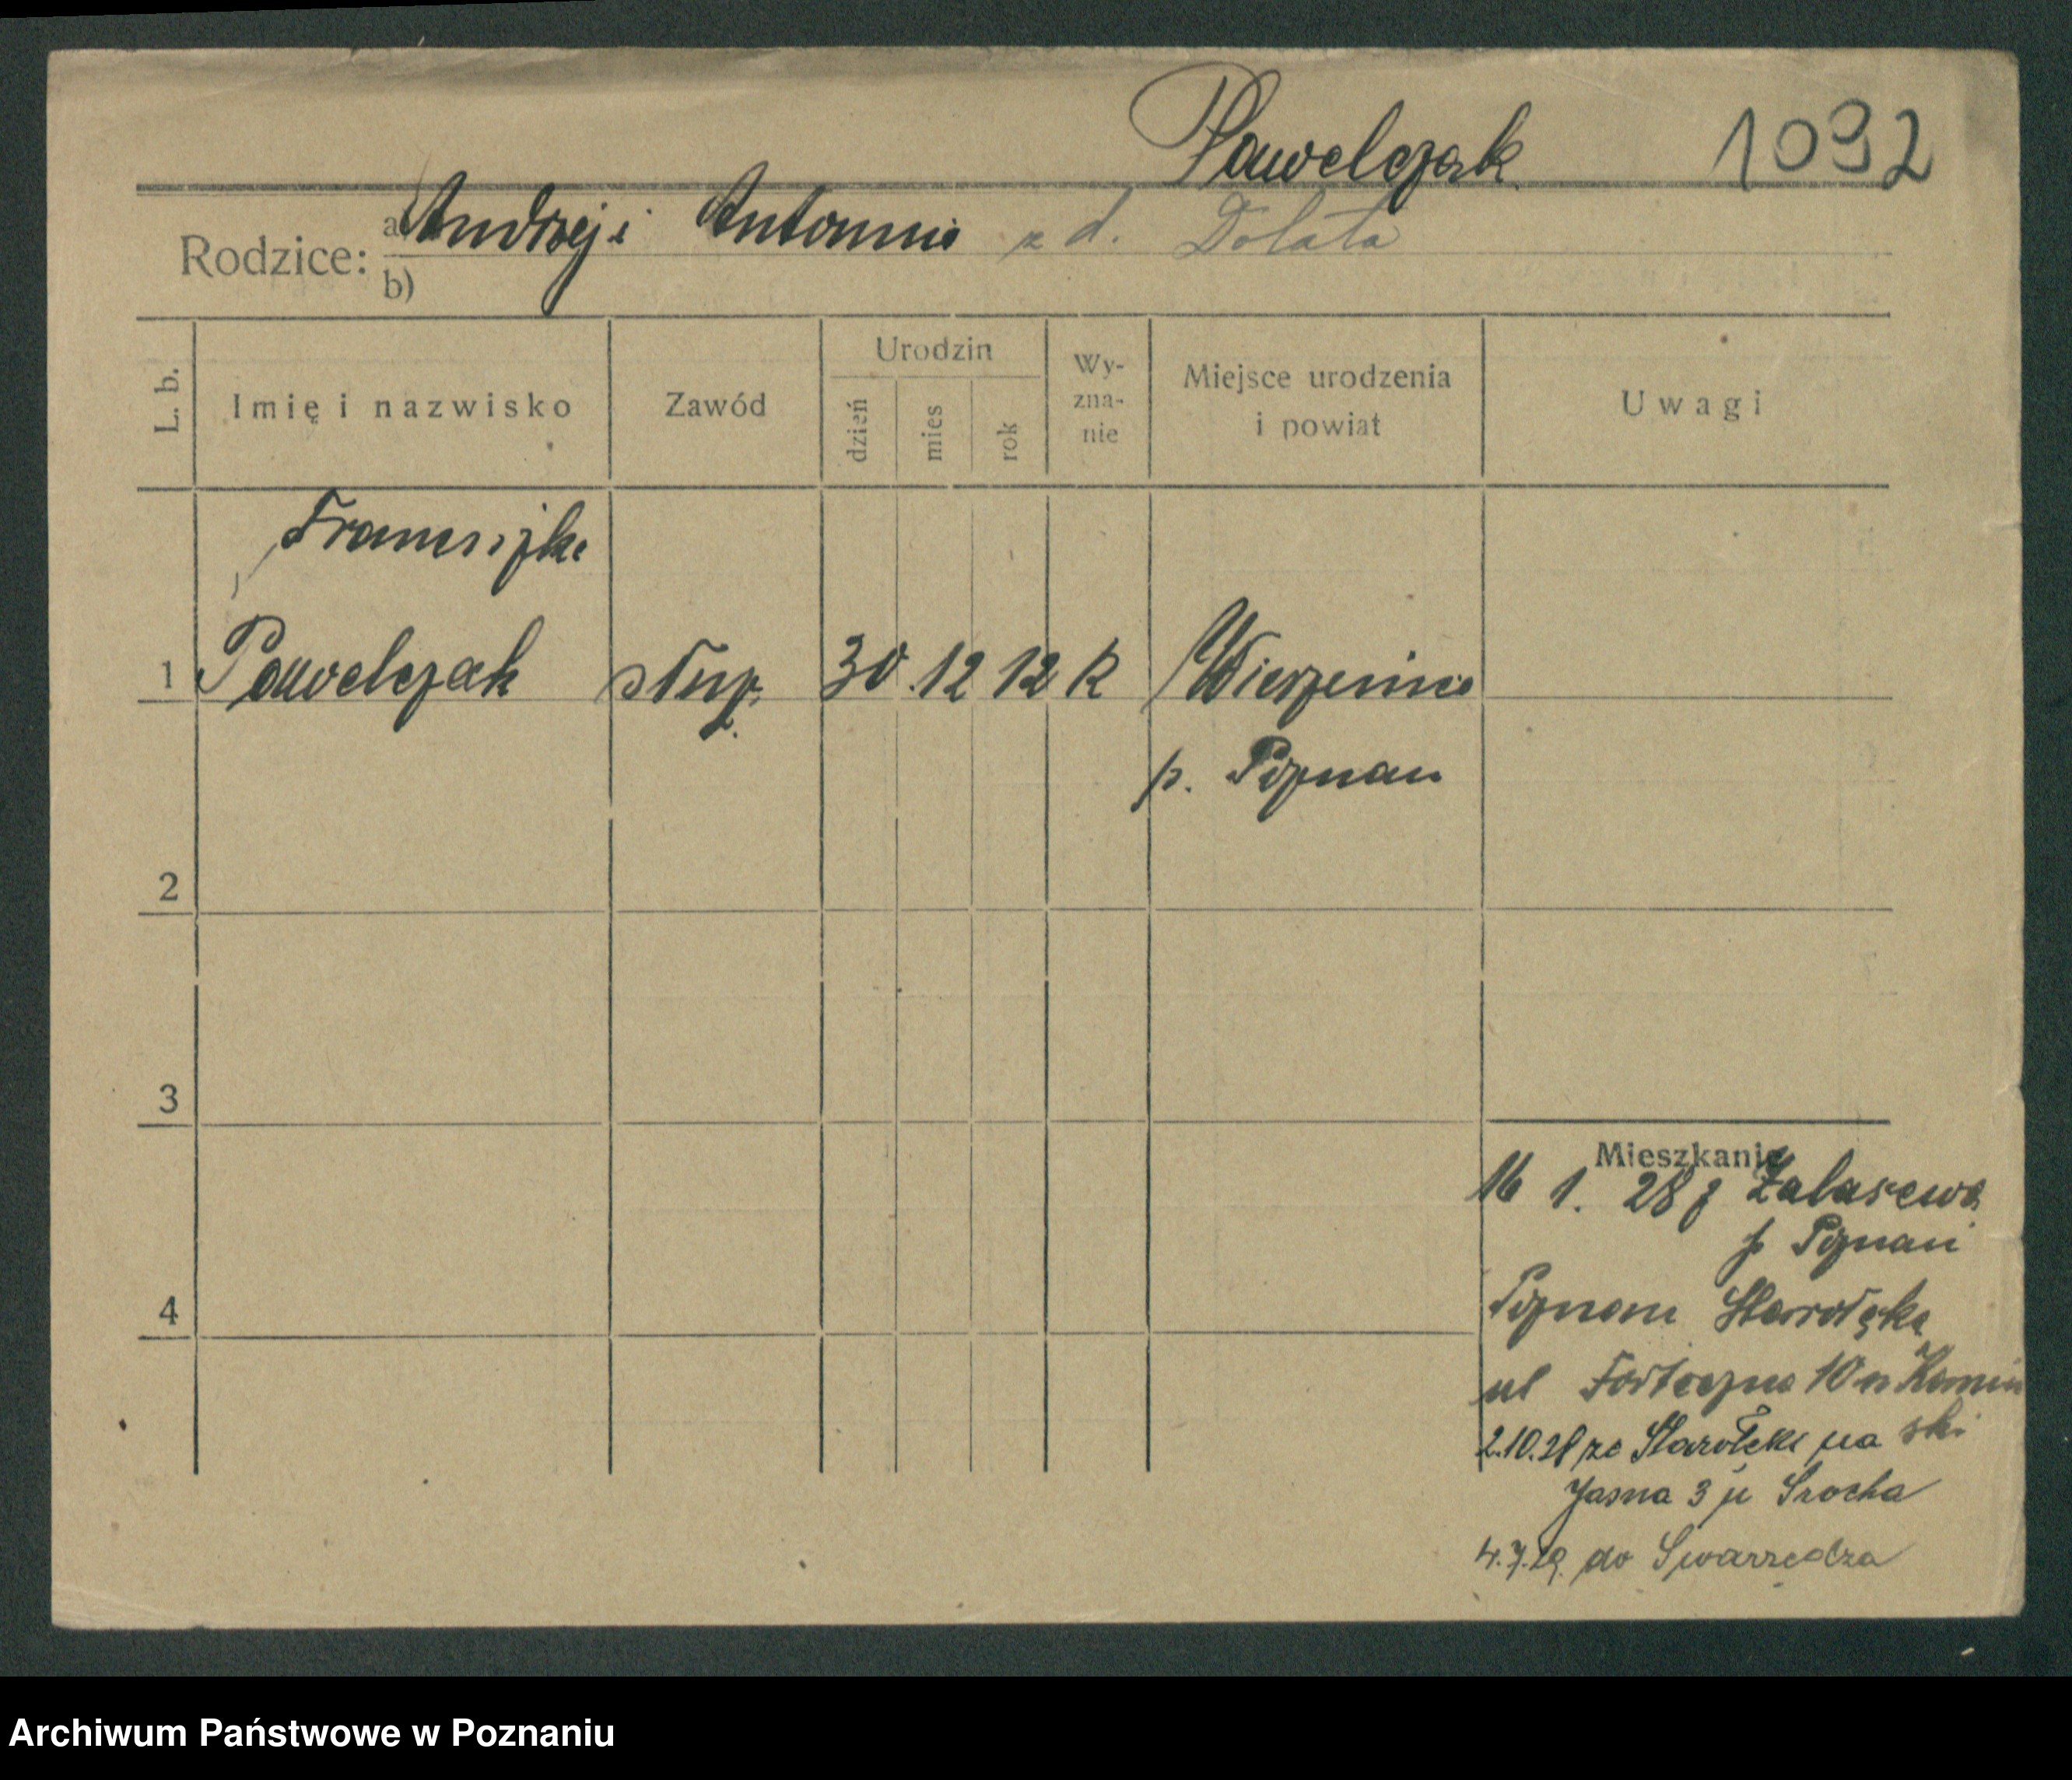 Pawelczak 1092
Rodzice: a) Andrzej i Antonina z d. Dolata
b)
L. b.
Imię i nazwisko
Zawód
Urodzin
dzień
mies
rok
Wy-
zna-
nie
Miejsce urodzenia
i powiat
Uwagi
Franciszka
1 Pawelczak służ. 30. 12 12 k Wierzenica
p. Poznań
2
3
4
Mieszkanie
16 1. 28 z Zalasewa
p Poznań
Poznań Starołęka
ul Forteczna 10 u Kamiń
ski
2.10.28 ze Starołęki na
Jasna 3 u Srocha
4.7.29. do Swarzędza
Archiwum Państwowe w Poznaniu